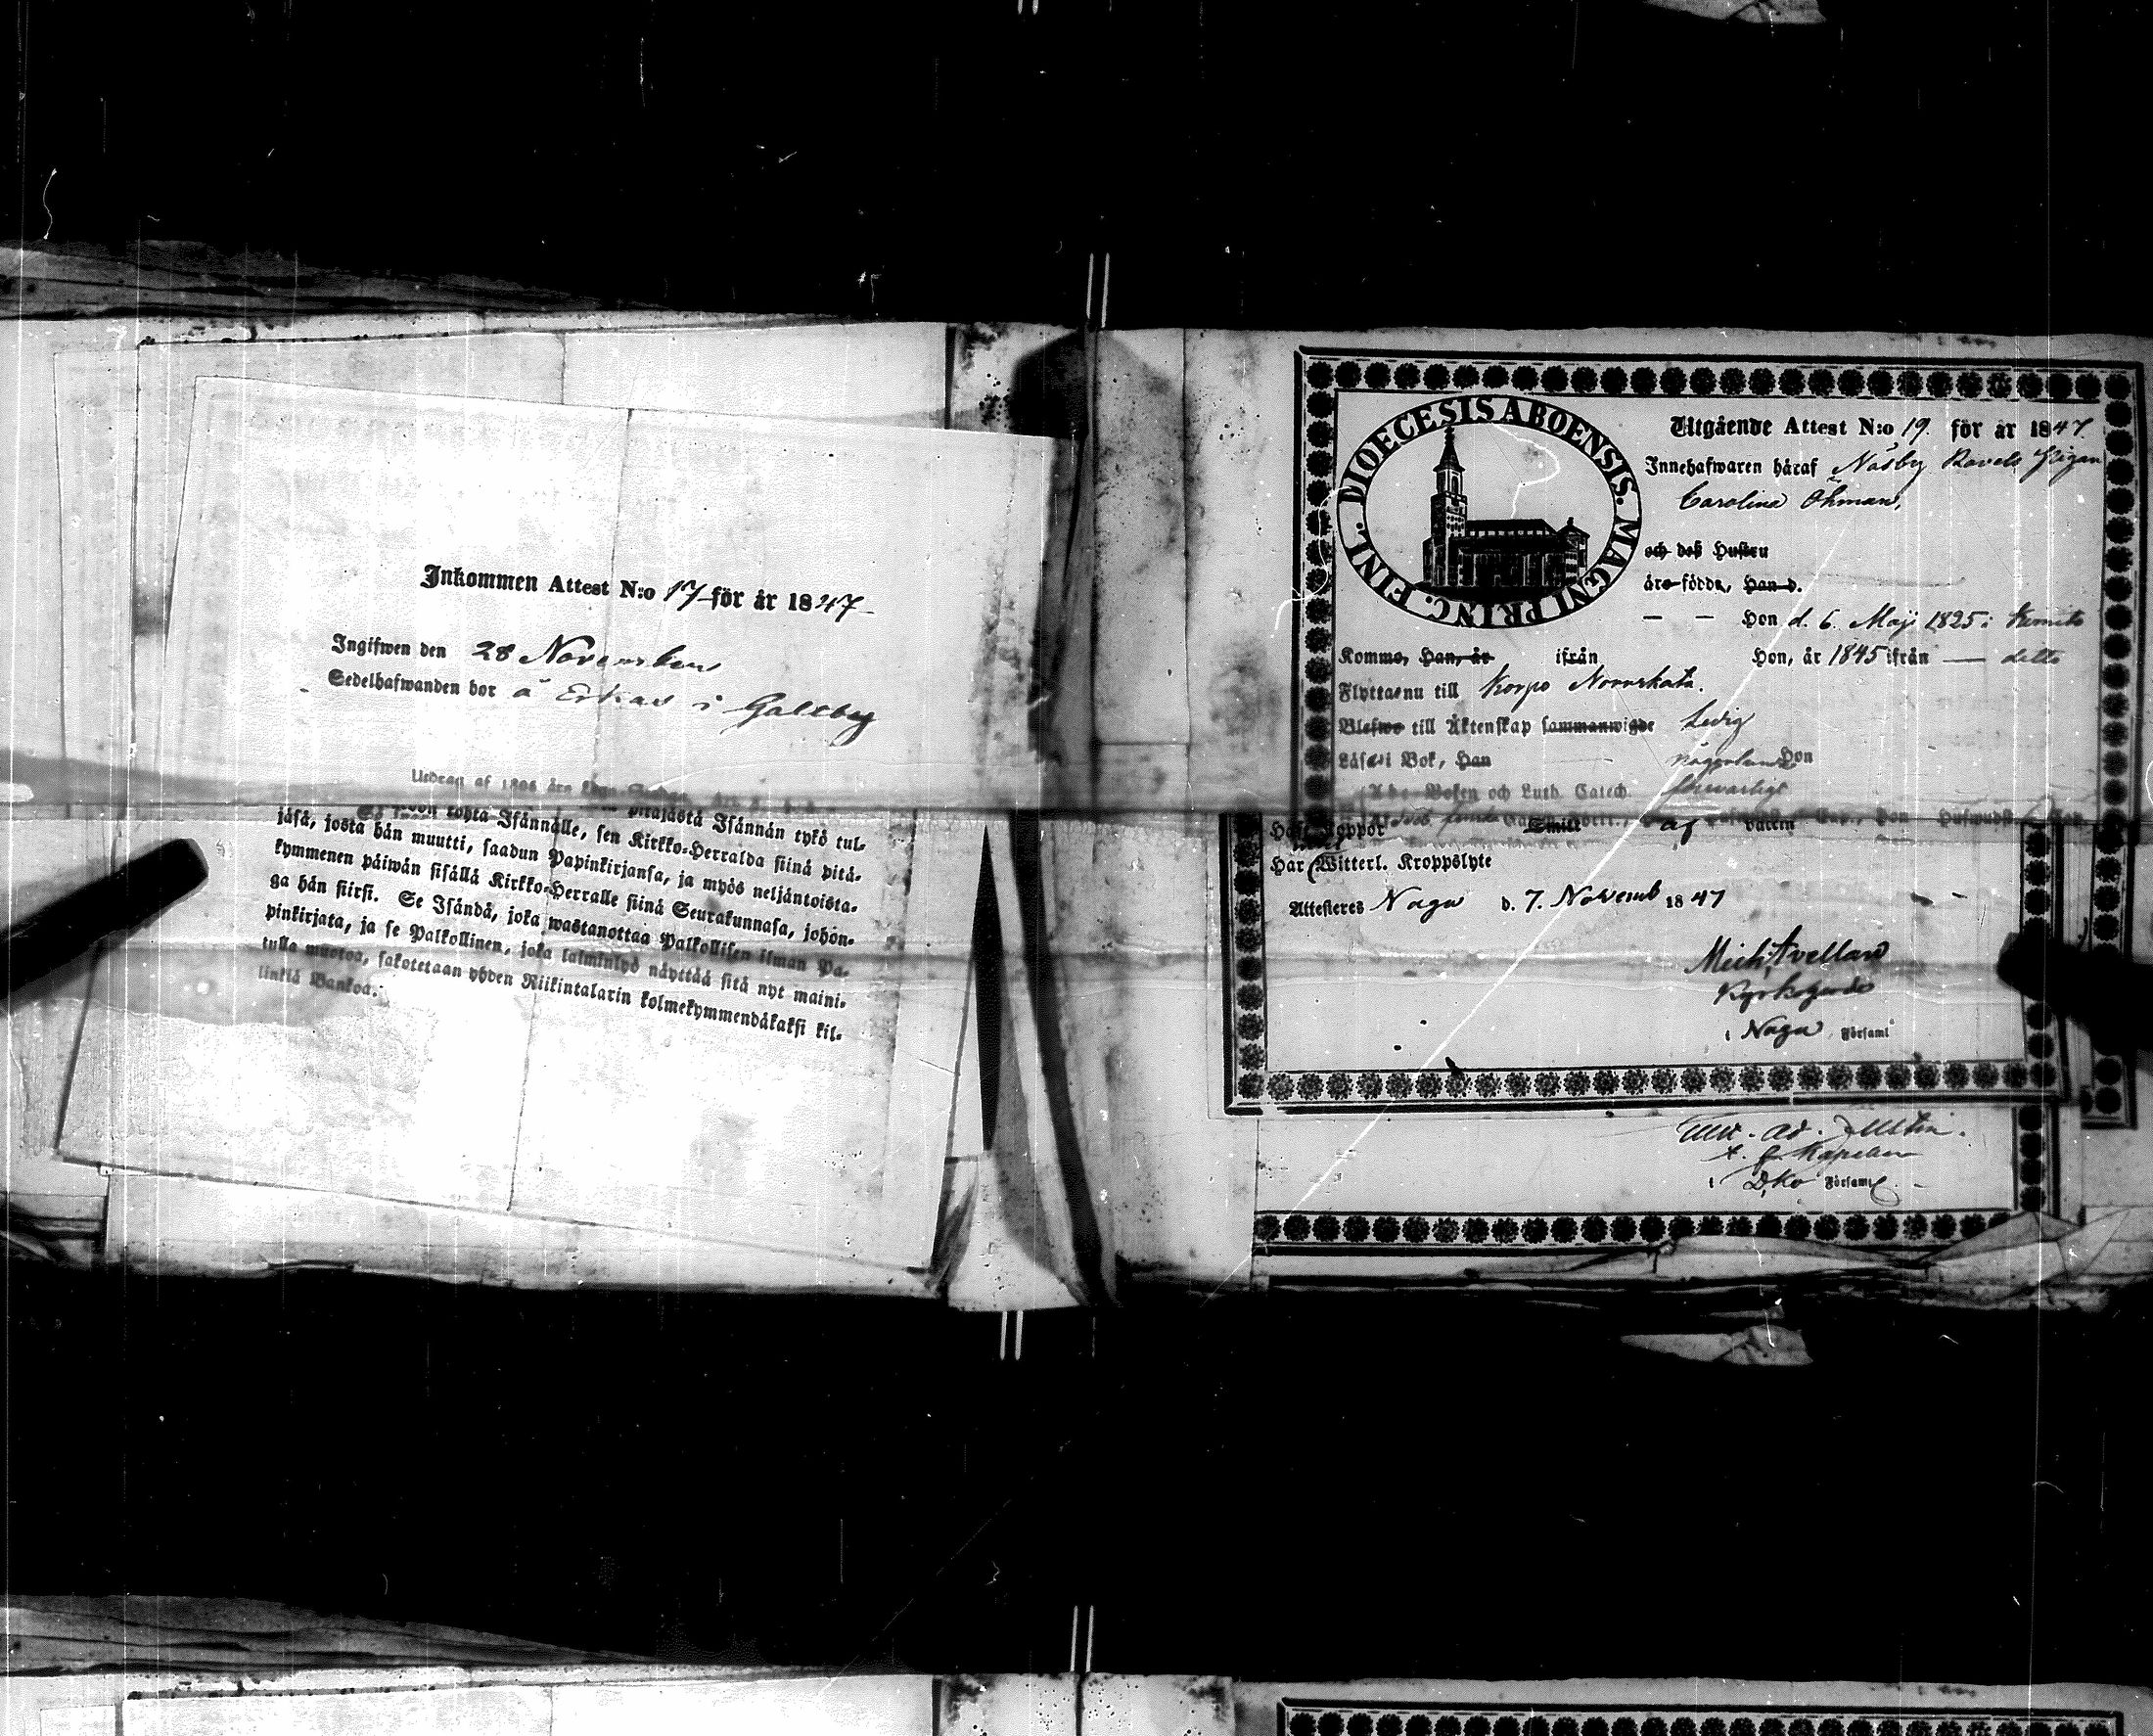 Inkommen Attest N:o 17 för år 1847
Ingifwen den 28 November
Sedelhafwanden bor å Erkas i Galtby
Utdrag af 18 års
kohta Isånnålle, sen Kirkko-Herralda siinå pitå-
pitajåstå Isånnån tykö tul-
jåså, josta hån muutti, saadun Papinkirjansa, ja myös neljåntoista-
kymmenen påiwån sisållå Kirkko-Herralle siinå Seurakunnasa, johon-
ga hån siirsi. Se Isåndå, joka wastanottaa Palkollisen ilman Pa-
pinkirjata, ja se Palkollinen, joka laiminlyö nåyttåå sitå nyt maini-
tulla muotoa, sakotetaan yhden Riikintalarin kolmekymmendåkaksi kil-
linkiå Bankoa.
DIOECESIS ABOENSIS. MAGNI PRINC. FINL.
Utgående Attest N:o 19. för år 1847.
Innehafwaren håraf Näsby Ravels Pigan
Carolina Öhman,
och deß Hustru
åro födde, Han d.
— — Hon d. 6 Maji 1825 i Kimito
Kommo, Han, år ifrån Hon, år 1845 ifrån — ditto
Flytta nu till Korpo Norrskata.
Blefwo till Åktenskap sammanwigde Ledig
Låsa i Bok, Han någorlunda Hon
A b c Boken och Luth. Catech. försvarligt
Haft Koppor af
Har Witterl. Kroppslyte
Attesteras Nagu d. 7. Novemb 1847
Mich: Avellan
Kyrkoherde
i Nagu Församl
i Församl